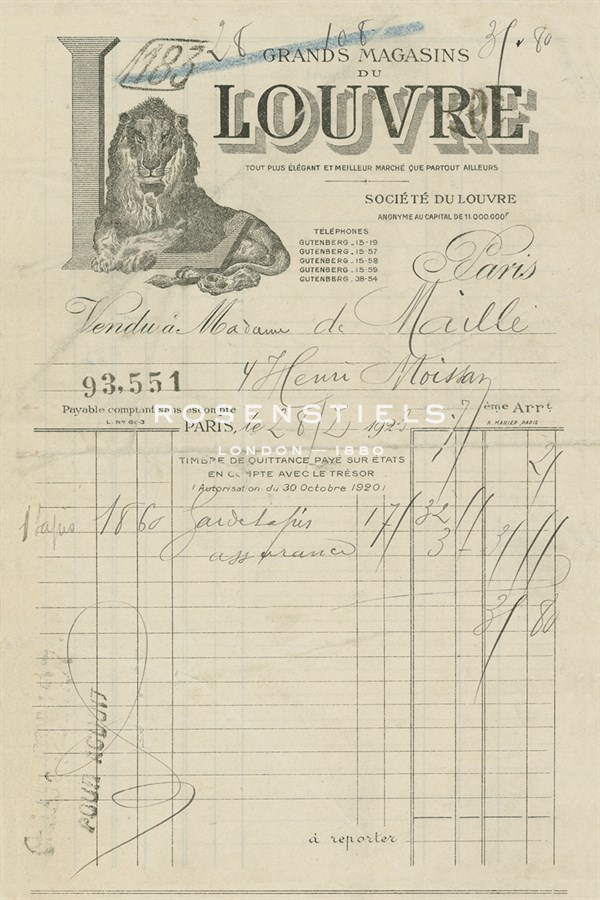 1183
28
108
GRANDS MAGASINS
DU
LOUVRE
TOUT PLUS ÉLÉGANT ET MEILLEUR MARCHÉ QUE PARTOUT AILLEURS
SOCIÉTÉ DU LOUVRE
ANONYME AU CAPITAL DE 11.000.000F
TÉLÉPHONES
GUTENBERG _ 15-19
GUTENBERG _ 15-57
GUTENBERG _ 15-58
GUTENBERG _ 15-59
GUTENBERG _ 38-54
Paris
Vendu à Madame de Maillé
4 Henri Moissan
93,551
7 ème Arrt
Payable comptant sans escompte
L. No 60-3
A. MARIER, PARIS
ROSENSTIELS
PARIS, le 28/2/192
LONDON — 1880
TIMBRE DE QUITTANCE PAYÉ SUR ÉTATS
EN COMPTE AVEC LE TRÉSOR
(Autorisation du 30 Octobre 1920)
1 tapis 18 60 Garde tapis 17 32
assurance 3
80
POUR ACQUIT
à reporter